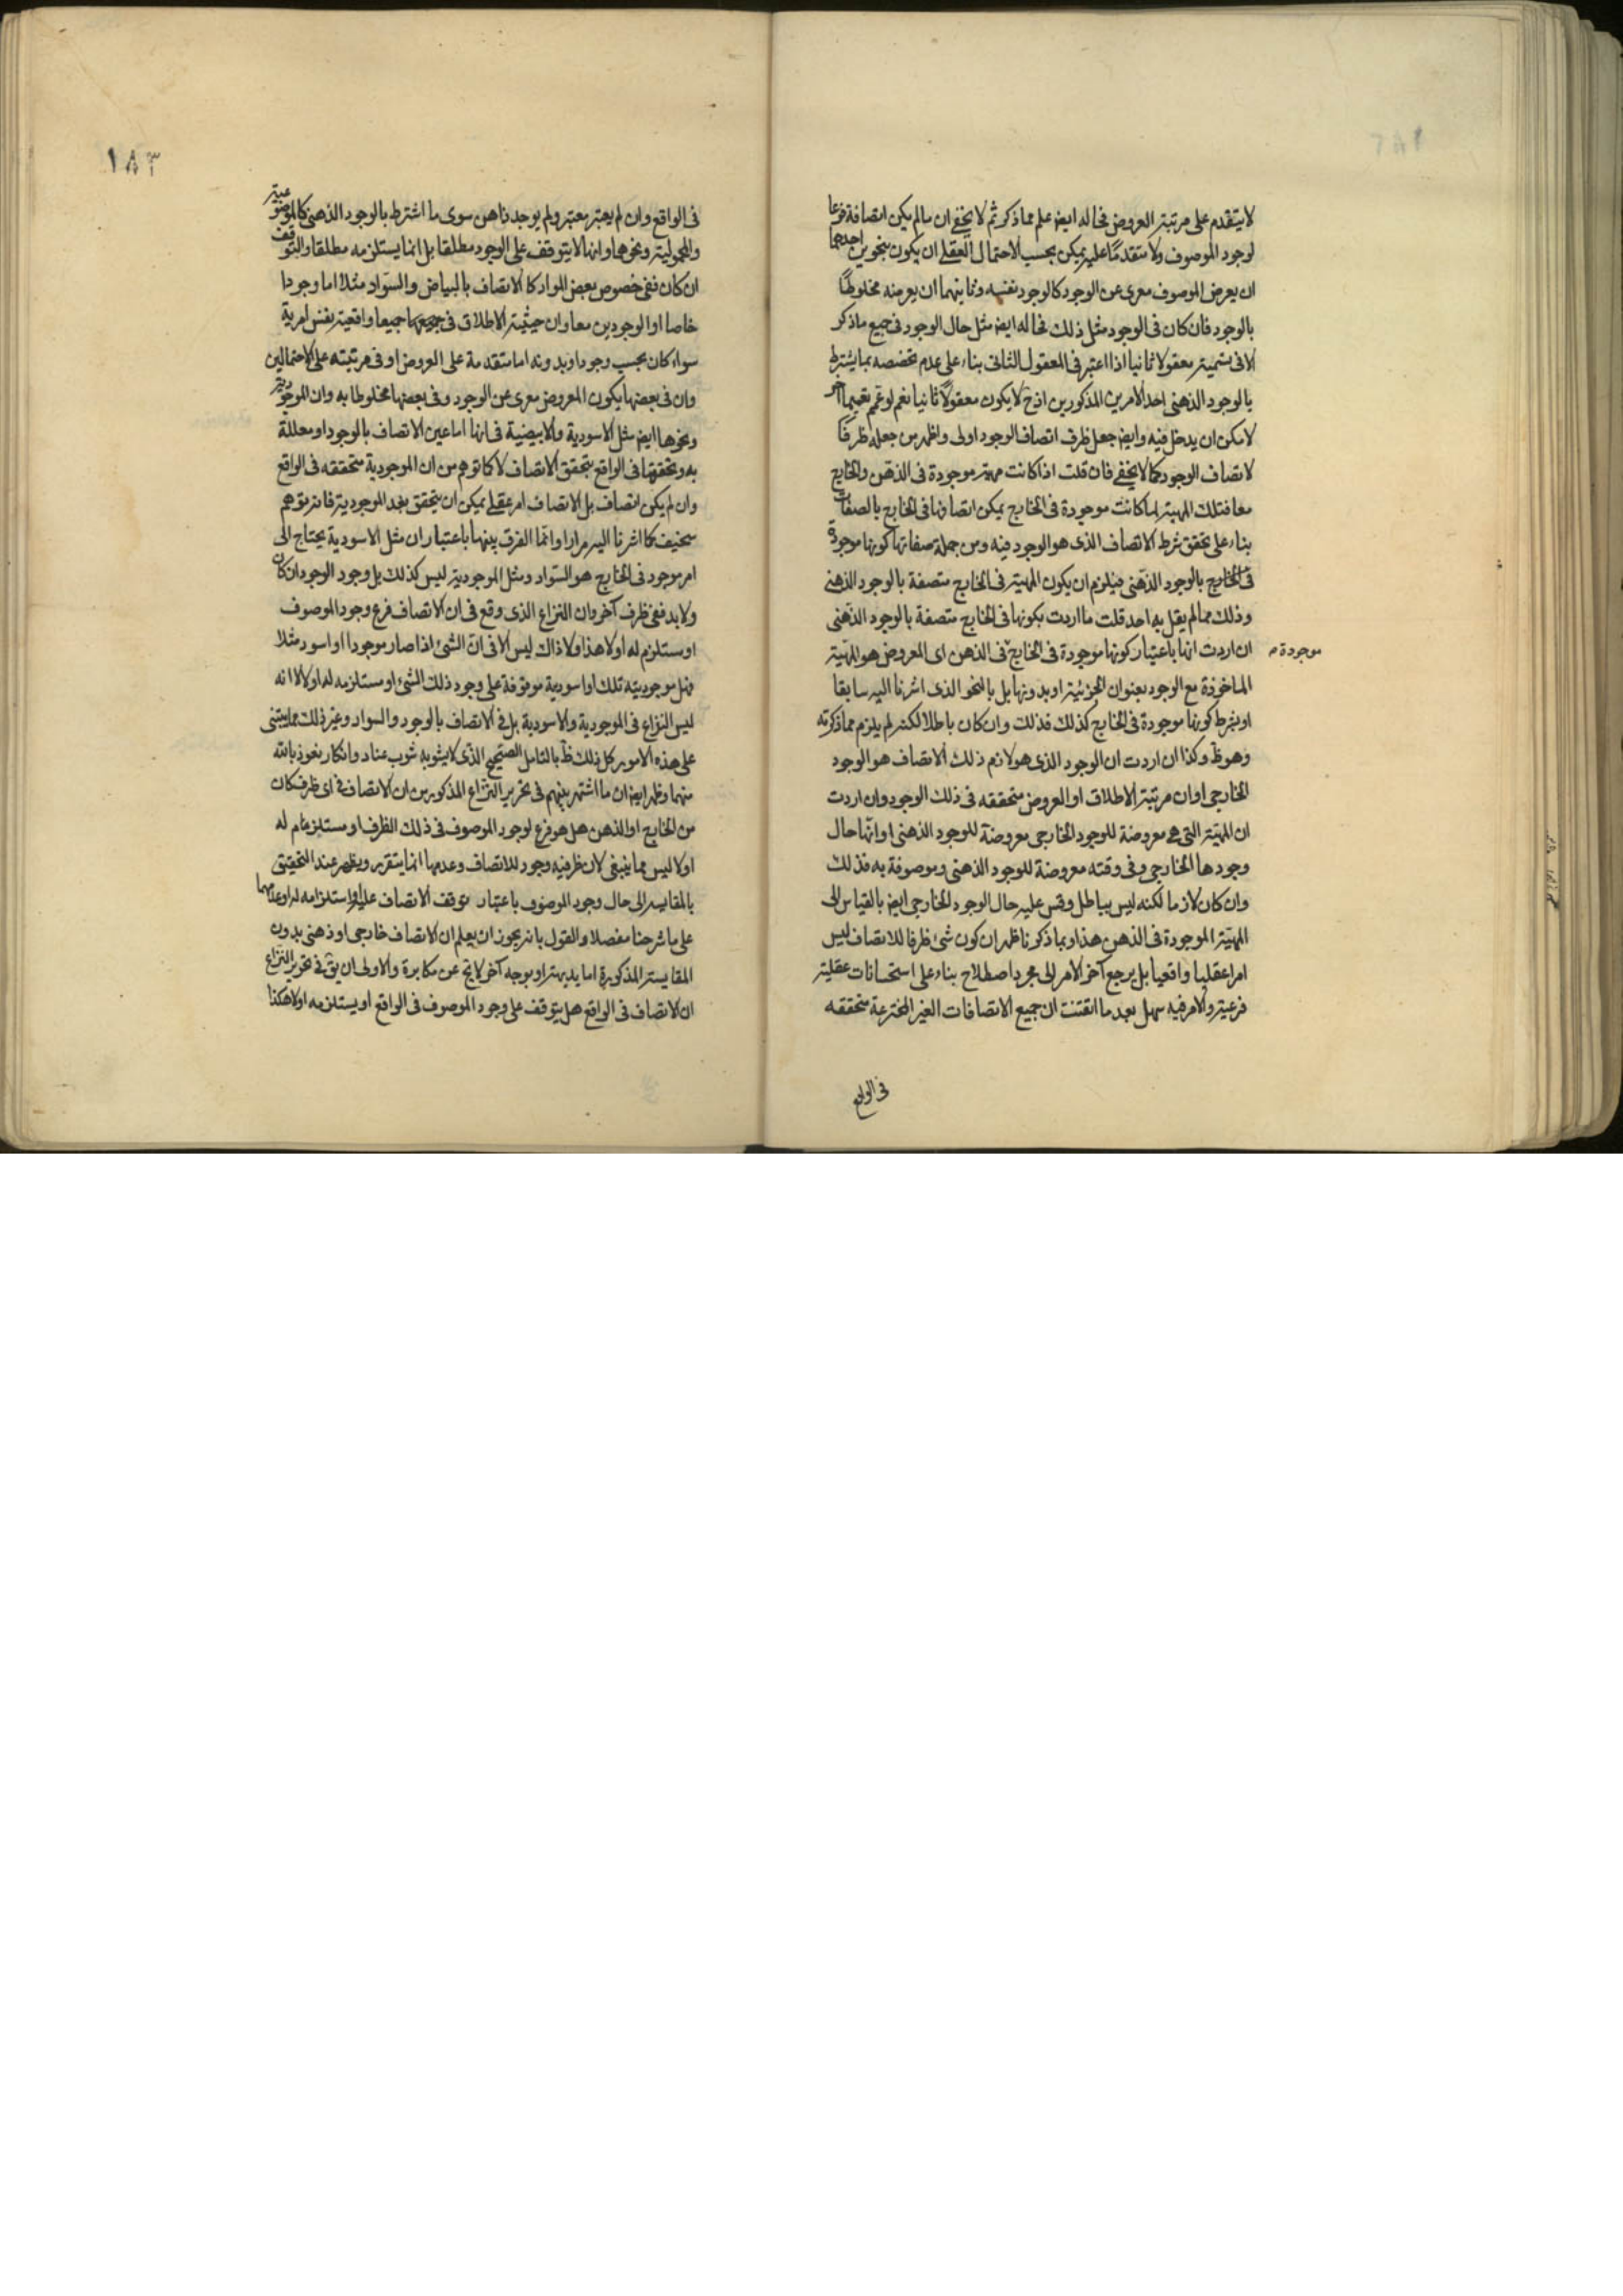 لا يتقدم على مرتبة العروض فحاله ايض علم مما ذكر ثم لا يخفى ان ما لم يكن اتصافه فرعا
لوجود الموصوف ولا متقدما عليه يمكن بحسب الاحتمال العقلى ان يكون بنحوين احدهما
ان يعرض الموصوف معرى عن الوجود كالوجود نفسه وثانيهما ان يعرضه مخلوطا
بالوجود فان كان فى الوجود مثل ذلك فحاله ايض مثل حال الوجود فى جميع ما ذكر
الا فى تسميته معقولا ثانيا اذا اعتبر فى المعقول الثانى بناء على عدم تخصصه بما يشترط
بالوجود الذهنى احد الامرين المذكورين اذ ح لا يكون معقولا ثانيا نعم لو عمم تعميما آخر
لامكن ان يدخل فيه وايض جعل ظرف اتصاف الوجود اولى واظهر من جعله ظرفا
لاتصاف الوجود كما لا يخفى فان قلت اذا كانت مهية موجودة فى الذهن والخارج
معا فتلك المهية لما كانت موجودة فى الخارج يمكن اتصافها فى الخارج بالصفات
بناء على تحقق شرط الاتصاف الذى هو الوجود فيه ومن جملة صفاتها كونها موجودة
فى الخارج بالوجود الذهنى فيلزم ان يكون المهية فى الخارج متصفة بالوجود الذهنى
وذلك مما لم يقل به احد قلت ما اردت بكونها فى الخارج متصفة بالوجود الذهنى
ان اردت انها باعتبار كونها موجودة فى الخارج فى الذهن اى المعروض هو المهية
موجودة
الماخوذة مع الوجود بعنوان الجزئية او بدونها بل بالنحو الذى اشرنا اليه سابقا
او بشرط كونها موجودة فى الخارج كذلك فذلك وان كان باطلا لكنه لم يلزم مما ذكرته
وهو ظ وكذا ان اردت ان الوجود الذى هو لازم ذلك الاتصاف هو الوجود
الخارجى او ان مرتبة الاطلاق او العروض متحققه فى ذلك الوجود وان اردت
ان المهية التى هى معروضة للوجود الخارجى معروضة للوجود الذهنى او انها حال
وجودها الخارجى وفى وقته معروضة للوجود الذهنى وموصوفة به فذلك
وان كان لازما لكنه ليس بباطل وقس عليه حال الوجود الخارجى ايض بالقياس الى
المهية الموجودة فى الذهن هذا وبما ذكرنا ظهر ان كون شئ ظرفا للاتصاف ليس
امرا عقليا واقعيا بل يرجع آخر الامر الى مجرد اصطلاح بناء على استحسانات عقلية
فرعية والامر فيه سهل بعد ما اتقنت ان جميع الاتصافات الغير المخترعة متحققه
فى الواقع
١٨٣
فى الواقع وان لم يعتبر معتبر ولم يوجد ذاهن سوى ما اشترط بالوجود الذهنى كالموضوعية
والمحمولية ونحوها وانها لا يتوقف على الوجود مطلقا بل انما يستلزمه مطلقا والتوقف
ان كان ففى خصوص بعض المواد كالاتصاف بالبياض والسواد مثلا اما وجودا
خاصا او الوجودين معا وان حيثية الاطلاق فى جميعها جميعا واقعية نفس امرية
سواء كان بحسب وجود او بدونه اما متقدمة على العروض او فى مرتبته على الاحتمالين
وان فى بعضها يكون المعروض معرى عن الوجود وفى بعضها مخلوطا به وان الموجودية
ونحوها ايض مثل الاسودية والابيضية فى انها اما عين الاتصاف بالوجود او معللة
به وتحققها فى الواقع بتحقق الاتصاف لا كما توهم من ان الموجودية متحققه فى الواقع
وان لم يكن اتصاف بل الاتصاف امر عقلى يمكن ان يتحقق بعد الموجودية فانه توهم
سخيف كما اشرنا اليه مرارا وانما الفرق بينهما باعتبار ان مثل الاسودية يحتاج الى
امر موجود فى الخارج هو السواد ومثل الموجودية ليس كذلك بل وجود الوجود ان كان
ولا بد ففى ظرف آخر وان النزاع الذى وقع فى ان الاتصاف فرع وجود الموصوف
او مستلزم له او لا هذا ولا ذاك ليس الا فى ان الشئ اذا صار موجودا او اسود مثلا
فهل موجوديته تلك او اسودية موقوفة على وجود ذلك الشئ او مستلزمه له او لا لا انه
ليس النزاع فى الموجودية والاسودية بل فى الاتصاف بالوجود والسواد وغير ذلك مما يبتنى
على هذه الامور كل ذلك ظ بالتامل الصحيح الذى لا يشوبه شوب عناد وانكار نعوذ بالله
منهما وظهر ايض ان ما اشتهر بينهم فى تحرير النزاع المذكور من ان الاتصاف فى اى ظرف كان
من الخارج او الذهن هل هو فرع لوجود الموصوف فى ذلك الظرف او مستلزم له
او لا ليس مما ينبغى لان ظرفية وجود للاتصاف وعدمها انما يتقرر ويظهر عند التحقيق
بالمقايسه الى حال وجود الموصوف باعتبار توقف الاتصاف عليه او استلزامه له او عدمهما
على ما شرحنا مفصلا والقول بانه يجوز ان يعلم ان الاتصاف خارجى او ذهنى بدون
المقايسة المذكورة اما بديهة او بوجه آخر لا يخ عن مكابرة والاولى ان يق فى تحرير النزاع
ان الاتصاف فى الواقع هل يتوقف على وجود الموصوف فى الواقع او يستلزمه او لا هكذا